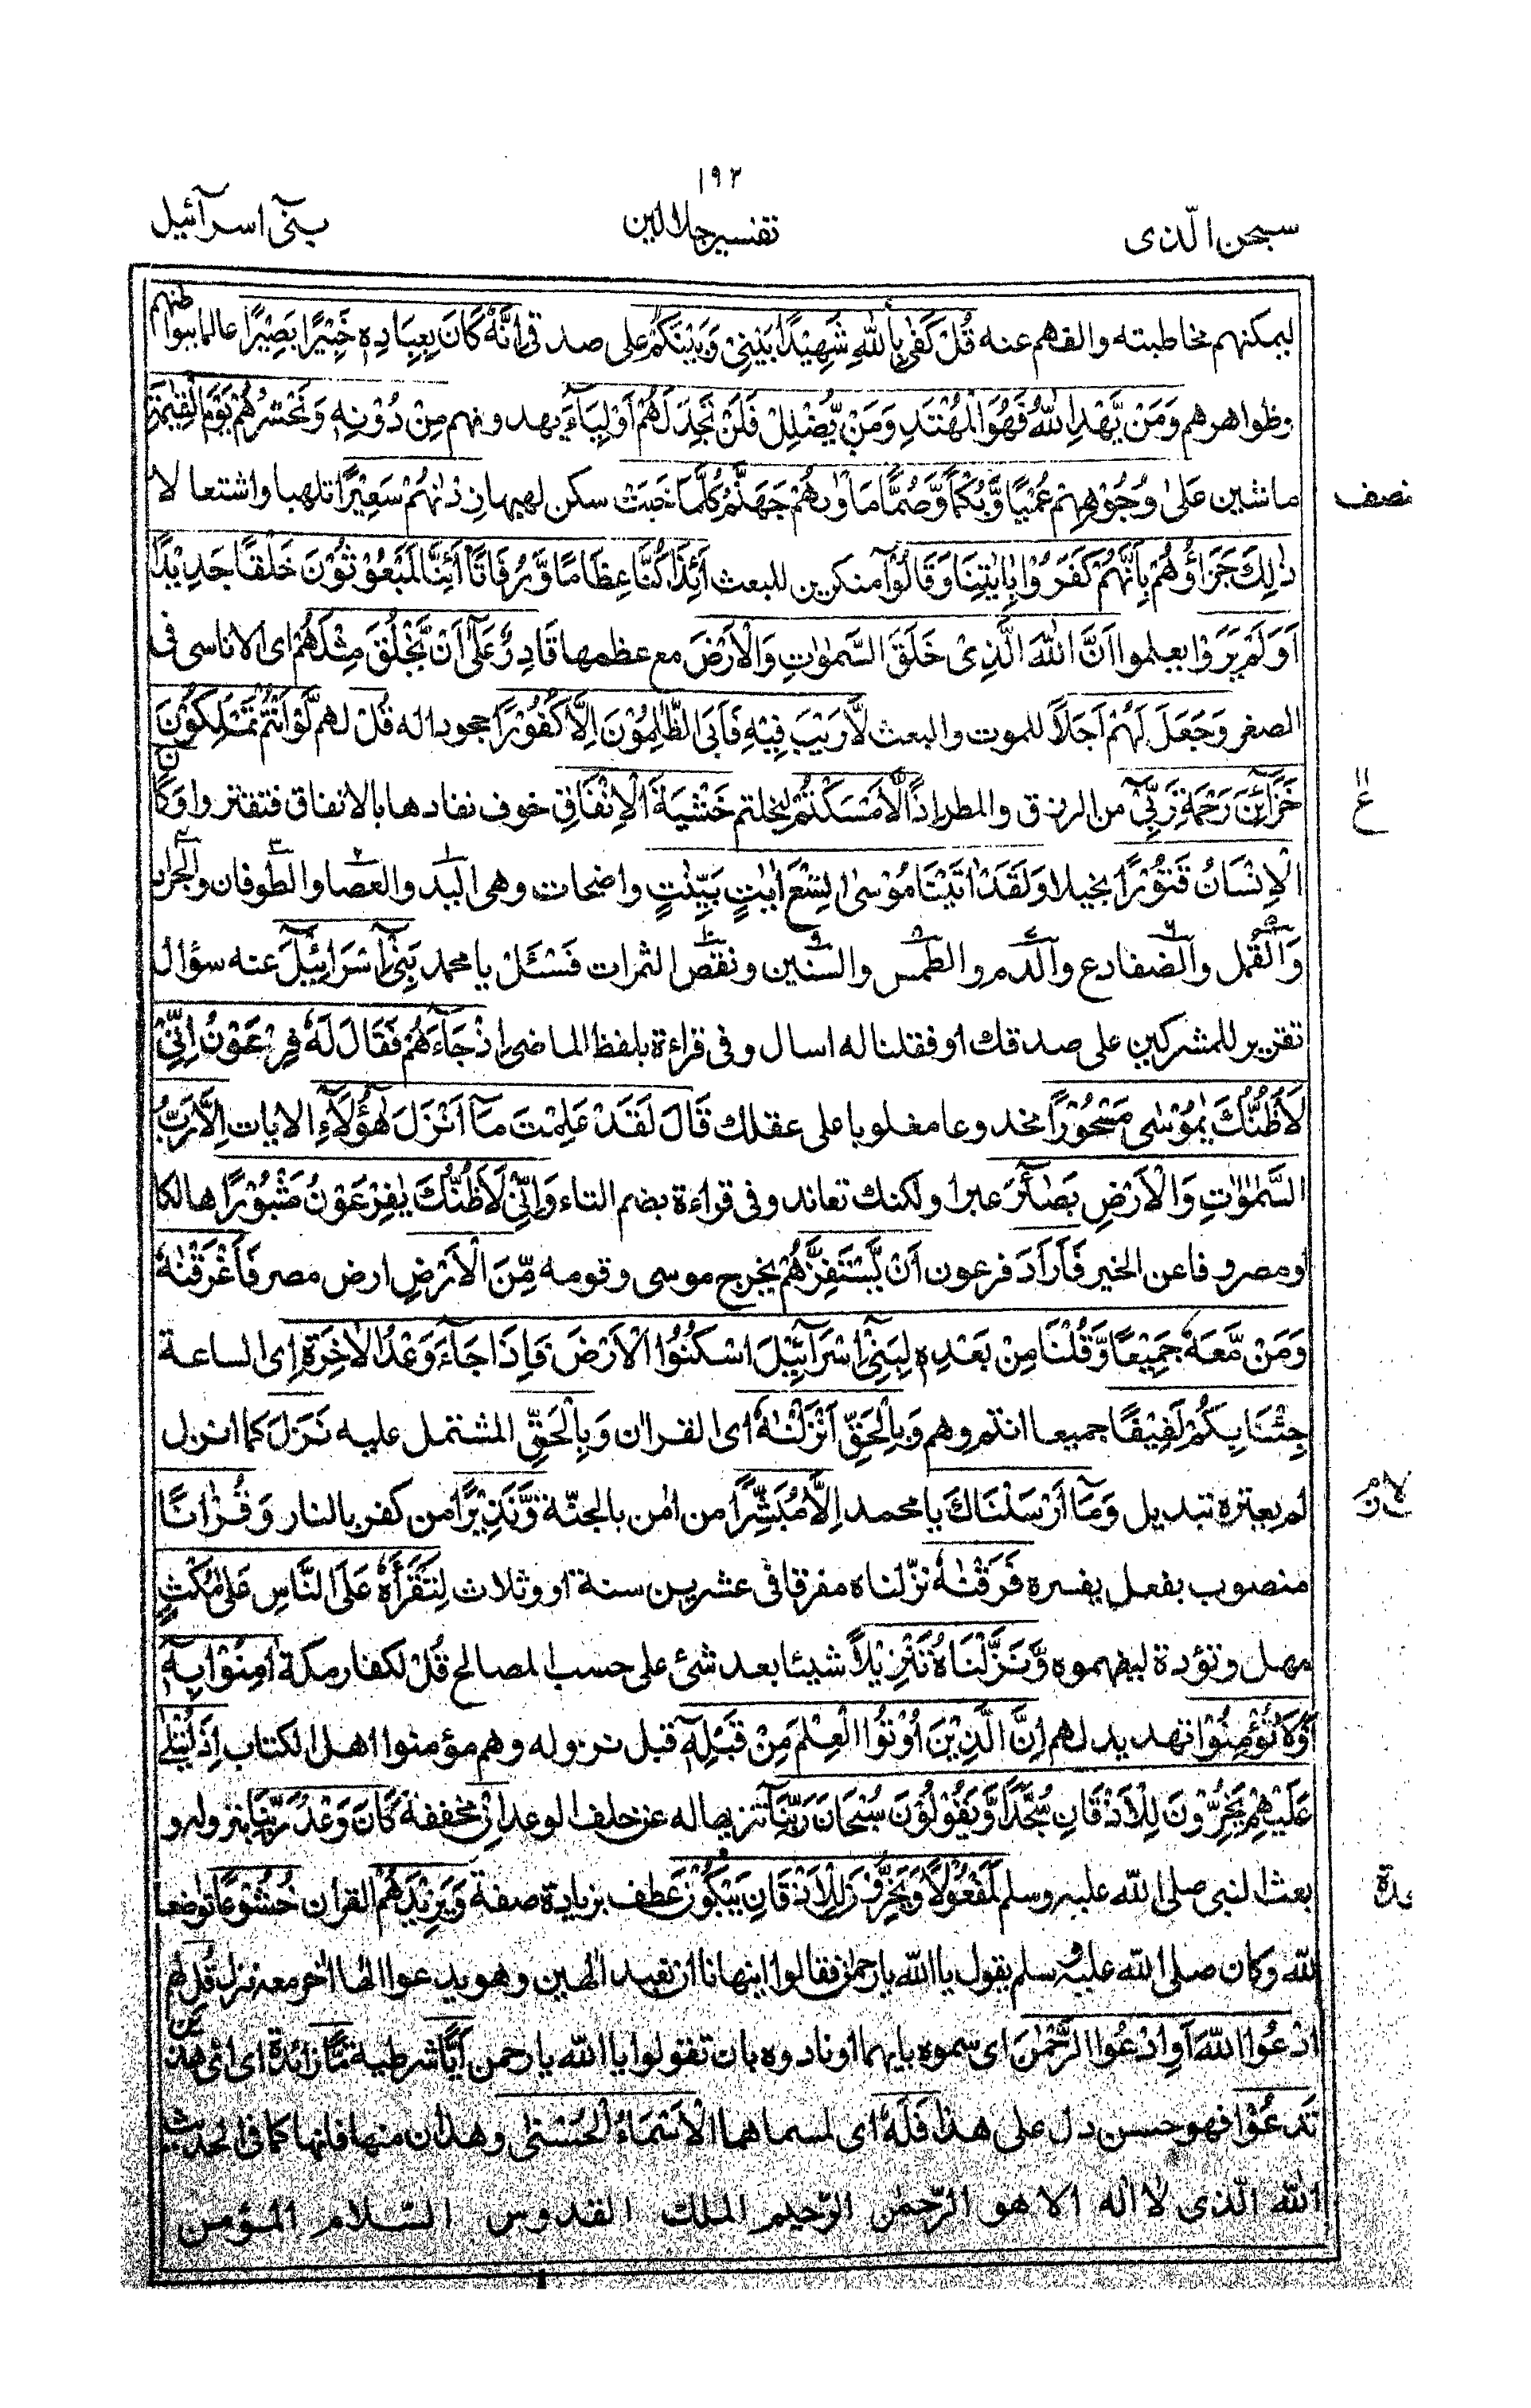 ١٩٢
سبحن الّذی
تفسیر جلالین
بنیٓ اسرآئیل
لیمکنهم مخاطبته والفهم عنه قُلْ كَفٰى بِاللّٰهِ شَهِيْدًۢا بَيْنِيْ وَبَيْنَكُمْ علی صدقی اِنَّهٗ كَانَ بِعِبَادِهٖ خَبِيْرًۢا بَصِيْرًا عالما ببواطنهم
وظواهرهم وَمَنْ يَّهْدِ اللّٰهُ فَهُوَ الْمُهْتَدِ وَمَنْ يُّضْلِلْ فَلَنْ تَجِدَ لَهُمْ اَوْلِيَآءَ یهدونهم مِنْ دُوْنِهٖ وَنَحْشُرُهُمْ يَوْمَ الْقِيٰمَةِ
ماشین عَلٰى وُجُوْهِهِمْ عُمْيًا وَّبُكْمًا وَّصُمًّا مَاْوٰىهُمْ جَهَنَّمُ كُلَّمَا خَبَتْ سکن لهیبها زِدْنٰهُمْ سَعِيْرًا تلهبا واشتعالا
نصف
ذٰلِكَ جَزَآؤُهُمْ بِاَنَّهُمْ كَفَرُوْا بِاٰيٰتِنَا وَقَالُوْٓا منکرین للبعث ءَاِذَا كُنَّا عِظَامًا وَّرُفَاتًا اَئِنَّا لَمَبْعُوْثُوْنَ خَلْقًا جَدِيْدًا
اَوَلَمْ يَرَوْا یعلموا اَنَّ اللّٰهَ الَّذِيْ خَلَقَ السَّمٰوٰتِ وَالْاَرْضَ مع عظمها قَادِرٌ عَلٰٓى اَنْ يَّخْلُقَ مِثْلَهُمْ ای الاناسی فی
الصغر وَجَعَلَ لَهُمْ اَجَلًا للموت والبعث لَّا رَيْبَ فِيْهِ فَاَبَى الظّٰلِمُوْنَ اِلَّا كُفُوْرًا جحودا له قُلْ لهم لَّوْ اَنْتُمْ تَمْلِكُوْنَ
خَزَآئِنَ رَحْمَةِ رَبِّيْٓ من الرزق والمطر اِذًا لَّاَمْسَكْتُمْ لبخلتم خَشْيَةَ الْاِنْفَاقِ خوف نفادها بالانفاق فتقتروا وَكَانَ
١١
ع
الْاِنْسَانُ قَتُوْرًا بخیلا وَلَقَدْ اٰتَيْنَا مُوْسٰى تِسْعَ اٰيٰتٍۢ بَيِّنٰتٍ واضحات وهی الید والعصا والطوفان والجراد
والقمل والضفادع والدم والطمس والسنین ونقص الثمرات فَسْئَلْ یا محمد بَنِيْٓ اِسْرَآئِيْلَ عنه سؤال
تقریر للمشرکین علی صدقك او فقلنا له اسال وفی قراءة بلفظ الماضی اِذْ جَآءَهُمْ فَقَالَ لَهٗ فِرْعَوْنُ اِنِّيْ
لَاَظُنُّكَ يٰمُوْسٰى مَسْحُوْرًا مخدوعا مغلوبا علی عقلك قَالَ لَقَدْ عَلِمْتَ مَآ اَنْزَلَ هٰٓؤُلَآءِ الایات اِلَّا رَبُّ
السَّمٰوٰتِ وَالْاَرْضِ بَصَآئِرَ عبرا ولکنك تعاند وفی قراءة بضم التاء وَاِنِّيْ لَاَظُنُّكَ يٰفِرْعَوْنُ مَثْبُوْرًا هالکا
او مصروفا عن الخیر فَاَرَادَ فرعون اَنْ يَّسْتَفِزَّهُمْ یخرج موسی وقومه مِّنَ الْاَرْضِ ارض مصر فَاَغْرَقْنٰهُ
وَمَنْ مَّعَهٗ جَمِيْعًا وَّقُلْنَا مِنْۢ بَعْدِهٖ لِبَنِيْٓ اِسْرَآئِيْلَ اسْكُنُوا الْاَرْضَ فَاِذَا جَآءَ وَعْدُ الْاٰخِرَةِ ای الساعة
جِئْنَا بِكُمْ لَفِيْفًا جمیعا انتم وهم وَبِالْحَقِّ اَنْزَلْنٰهُ ای القران وَبِالْحَقِّ المشتمل علیه نَزَلَ کما انزل
لم یعتره تبدیل وَمَآ اَرْسَلْنٰكَ یا محمد اِلَّا مُبَشِّرًا من امن بالجنّة وَّنَذِيْرًا من کفر بالنار وَقُرْاٰنًا
منصوب بفعل یفسره فَرَقْنٰهُ نزّلناه مفرقا فی عشرین سنة او وثلاث لِتَقْرَاَهٗ عَلَى النَّاسِ عَلٰى مُكْثٍ
مهل وتؤدة لیفهموه وَّنَزَّلْنٰهُ تَنْزِيْلًا شیئا بعد شئ علی حسب المصالح قُلْ لکفار مکة اٰمِنُوْا بِهٖٓ
اَوْ لَا تُؤْمِنُوْا تهدید لهم اِنَّ الَّذِيْنَ اُوْتُوا الْعِلْمَ مِنْ قَبْلِهٖٓ قبل نزوله وهم مؤمنوا اهل الکتاب اِذَا يُتْلٰى
عَلَيْهِمْ يَخِرُّوْنَ لِلْاَذْقَانِ سُجَّدًا وَّيَقُوْلُوْنَ سُبْحَانَ رَبِّنَآ تنزیها له عن خلف الوعد اِنْ مخففة كَانَ وَعْدُ رَبِّنَا بنزوله و
بعث النبی صلی الله علیه وسلم لَمَفْعُوْلًا وَيَخِرُّوْنَ لِلْاَذْقَانِ يَبْكُوْنَ عطف بزیادة صفة وَيَزِيْدُهُمْ القران خُشُوْعًا تواضعا
لله وکان صلی الله علیه وسلم یقول یا الله یا رحمن فقالوا ینهانا ان نعبد الٰهین وهو یدعو الٰها اٰخر معه نزل قُلِ لهم
ادْعُوا اللّٰهَ اَوِ ادْعُوا الرَّحْمٰنَ ای سموه بایهما او نادوه بان تقولوا یا الله یا رحمن اَيًّا شرطیة مَّا زائدة ای ائ هذین
تَدْعُوْا فهو حسن دل علی هذا فَلَهُ ای لمسماهما الْاَسْمَآءُ الْحُسْنٰى وهذان منها فانها کما فی الحدیث
الله الّذی لا اله الا هو الرّحمٰن الرّحیم الملك القدوس السّلام المؤمن